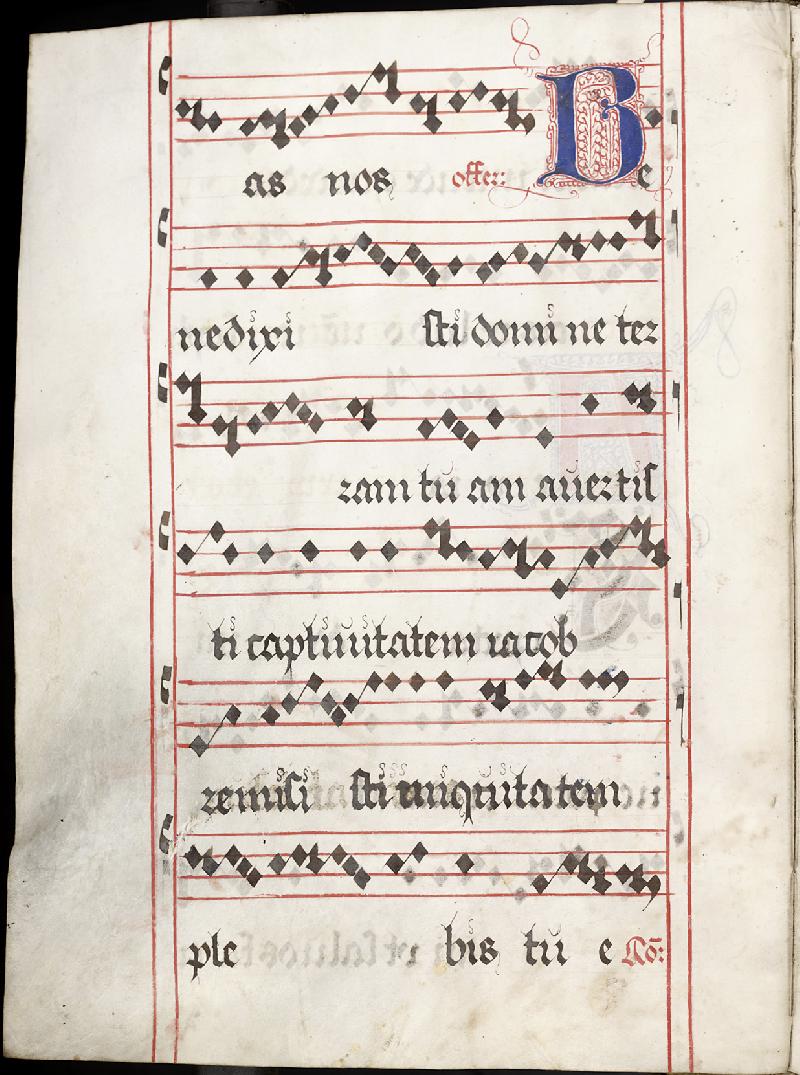 as nos offer: Be
nedixi sti domi ne ter
ram tu am auertis
ti captiuitatem iacob
remisi sti iniquitatem
ple bis tu e Co: